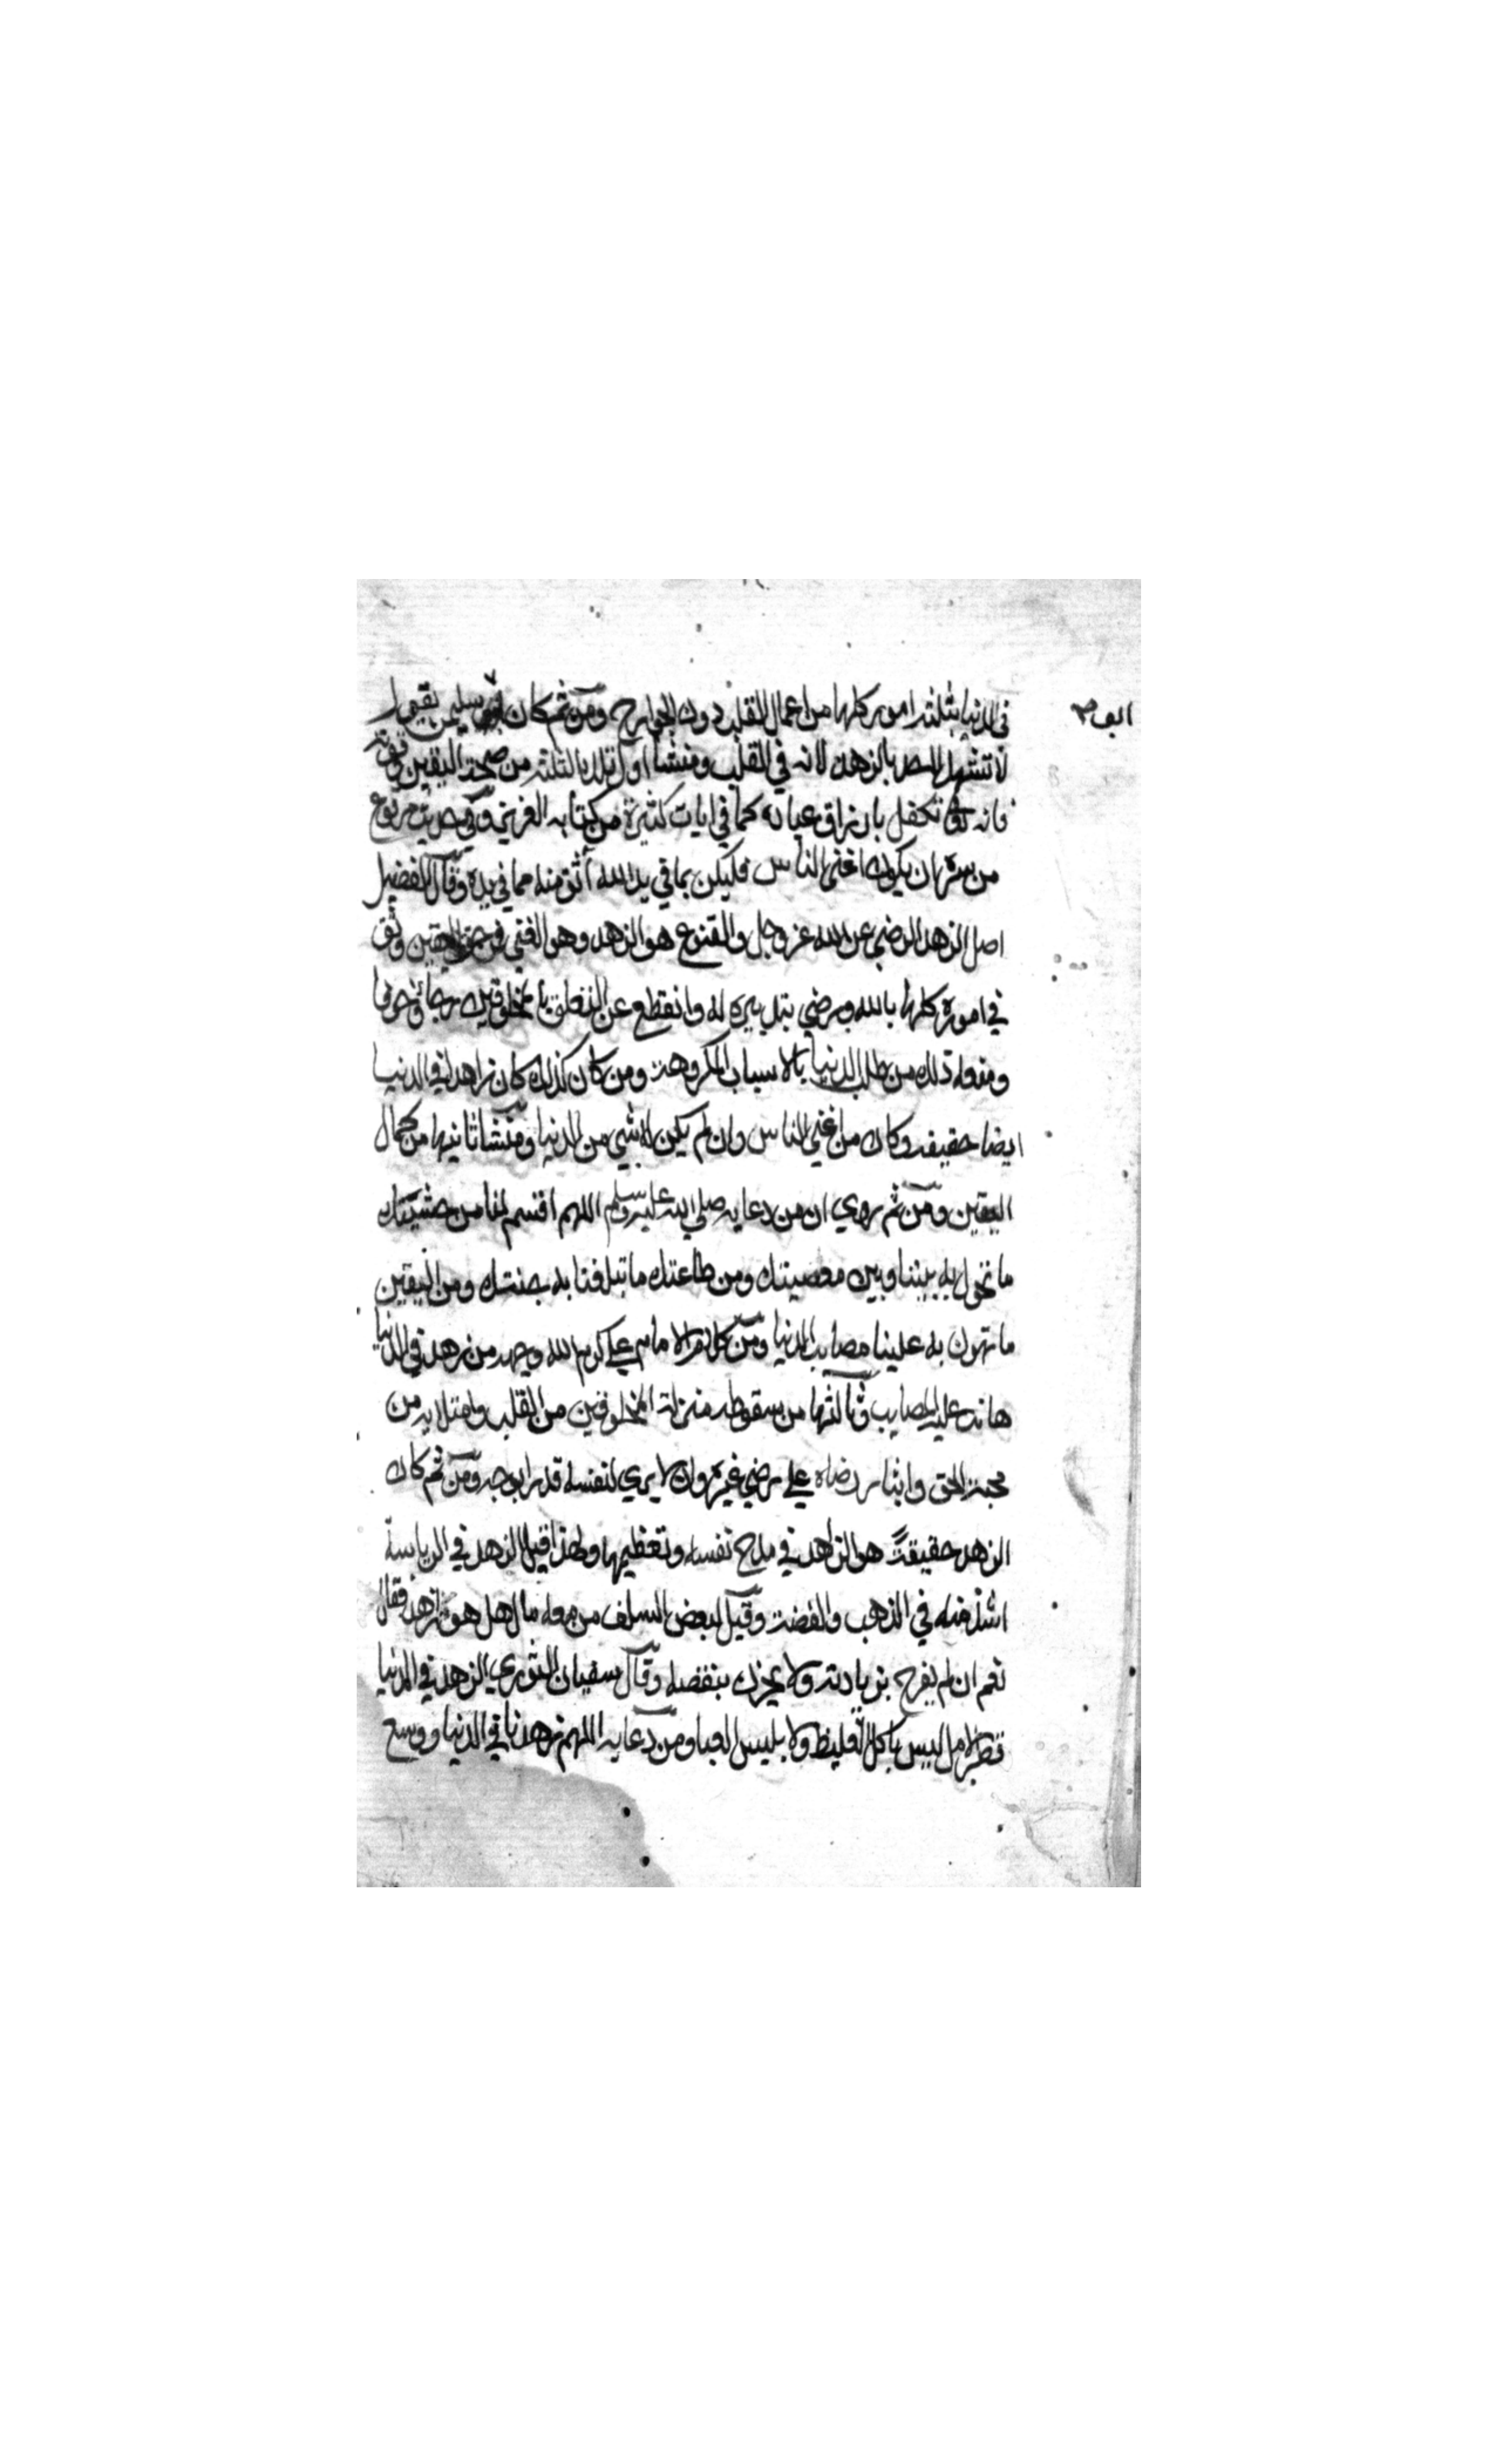 في الدنيا بثلثة امور كلها من اعمال القلب دون الجوارح ومن ثم كان سليمن يقول
لا تشهد لاحد بالزهد لانه في القلب ومنشا اول تلك الثلثة من صحة اليقين وقوته
فانه تكفل بارزاق عباده كما في ايات كثيرة من كتابه العزيز وفي حديث مرفوع
من سره ان يكون اغنى الناس فليكن بما في يد الله أثق منه مما في يده وقال الفضيل
اصل الزهد الرضي عن الله عز وجل والقنوع هو الزهد وهو الغني فمن حقق اليقين وثق
في اموره كلها بالله ورضي بتدبيره له وانقطع عن التعلق بالمخلوقين رجائ وخوفا
ومنعه ذلك من طلب الدنيا بالاسباب المكروهة ومن كان كذلك كان زاهدا في الدنيا
ايضا حقيقة وكان من اغني الناس وان لم يكن له شي من الدنيا ومنشا ثانيها من كمال
اليقين ومن ثم روي ان من دعايه صلي الله عليه وسلم اللهم اقسم لنا من خشيتك
ما تحول به بيننا وبين معصيتك ومن طاعتك ما تبلغنا به جنتك ومن اليقين
ما تهون به علينا مصايب الدنيا ومن كلام الامام علي كرم الله وجهه من زهد في الدنيا
هانت عليه المصايب وثالثها من سقوط منزلة المخلوقين من القلب وامتلايه من
محبة الحق وايثار رضاه علي رضي غيره وان لا يري لنفسه قدرا بوجه ومن ثم كان
الزهد حقيقةً هو الزاهد في مدح نفسه وتعظيمها ولهذا قيل الزهد في الرياسة
اشد منه في الذهب والفضة وقيل لبعض السلف من معه مال هل هو زاهد فقال
نعم ان لم يفرح بزيادته ولا يحزن بنقصه وقال سفيان الثوري الزهد في الدنيا
قصر الامل ليس باكل الغليظ ولا بلبس العبا ومن دعايه اللهم زهدنا في الدنيا ووسع